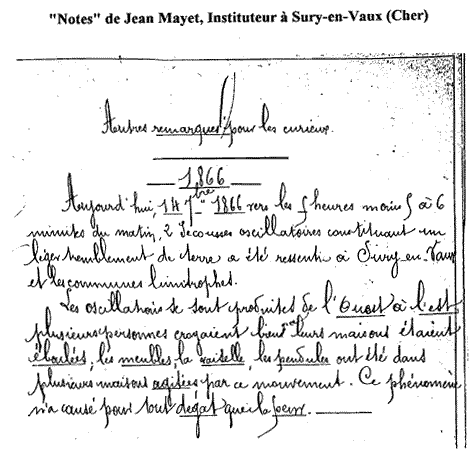 "Notes" de Jean Mayet, Instituteur à Sury-en-Vaux (Cher)
Autres remarques pour les curieux.
1866
Aujourd'hui, 14 7bre 1866 vers les 5 heures moins 5 à 6
minutes du matin, 2 secousses oscillatoires constituant un
léger tremblement de terre a été ressenti à Sury-en-Vaux
et les communes limitrophes.
Les oscillations se sont produites de l'Ouest à l'est
plusieurs personnes croyaient bien que leurs maisons étaient
éboulées, les meubles, la vaisselle, les pendules ont été dans
plusieurs maisons agitées par ce mouvement. Ce phénomène
n'a causé pour tout dégat que la peur.